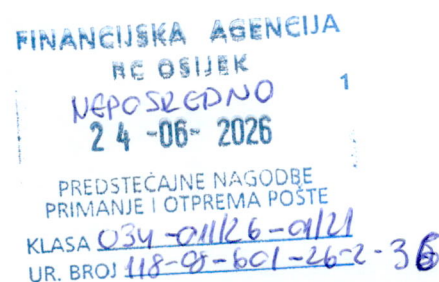 FINANCIJSKA AGENCIJA
RC OSIJEK
NEPOSREDNO
1
24 -06- 2026
PREDSTEČAJNE NAGODBE
PRIMANJE I OTPREMA POŠTE
KLASA 034-011/26-01/21
UR. BROJ 118-08-601-26-2-36